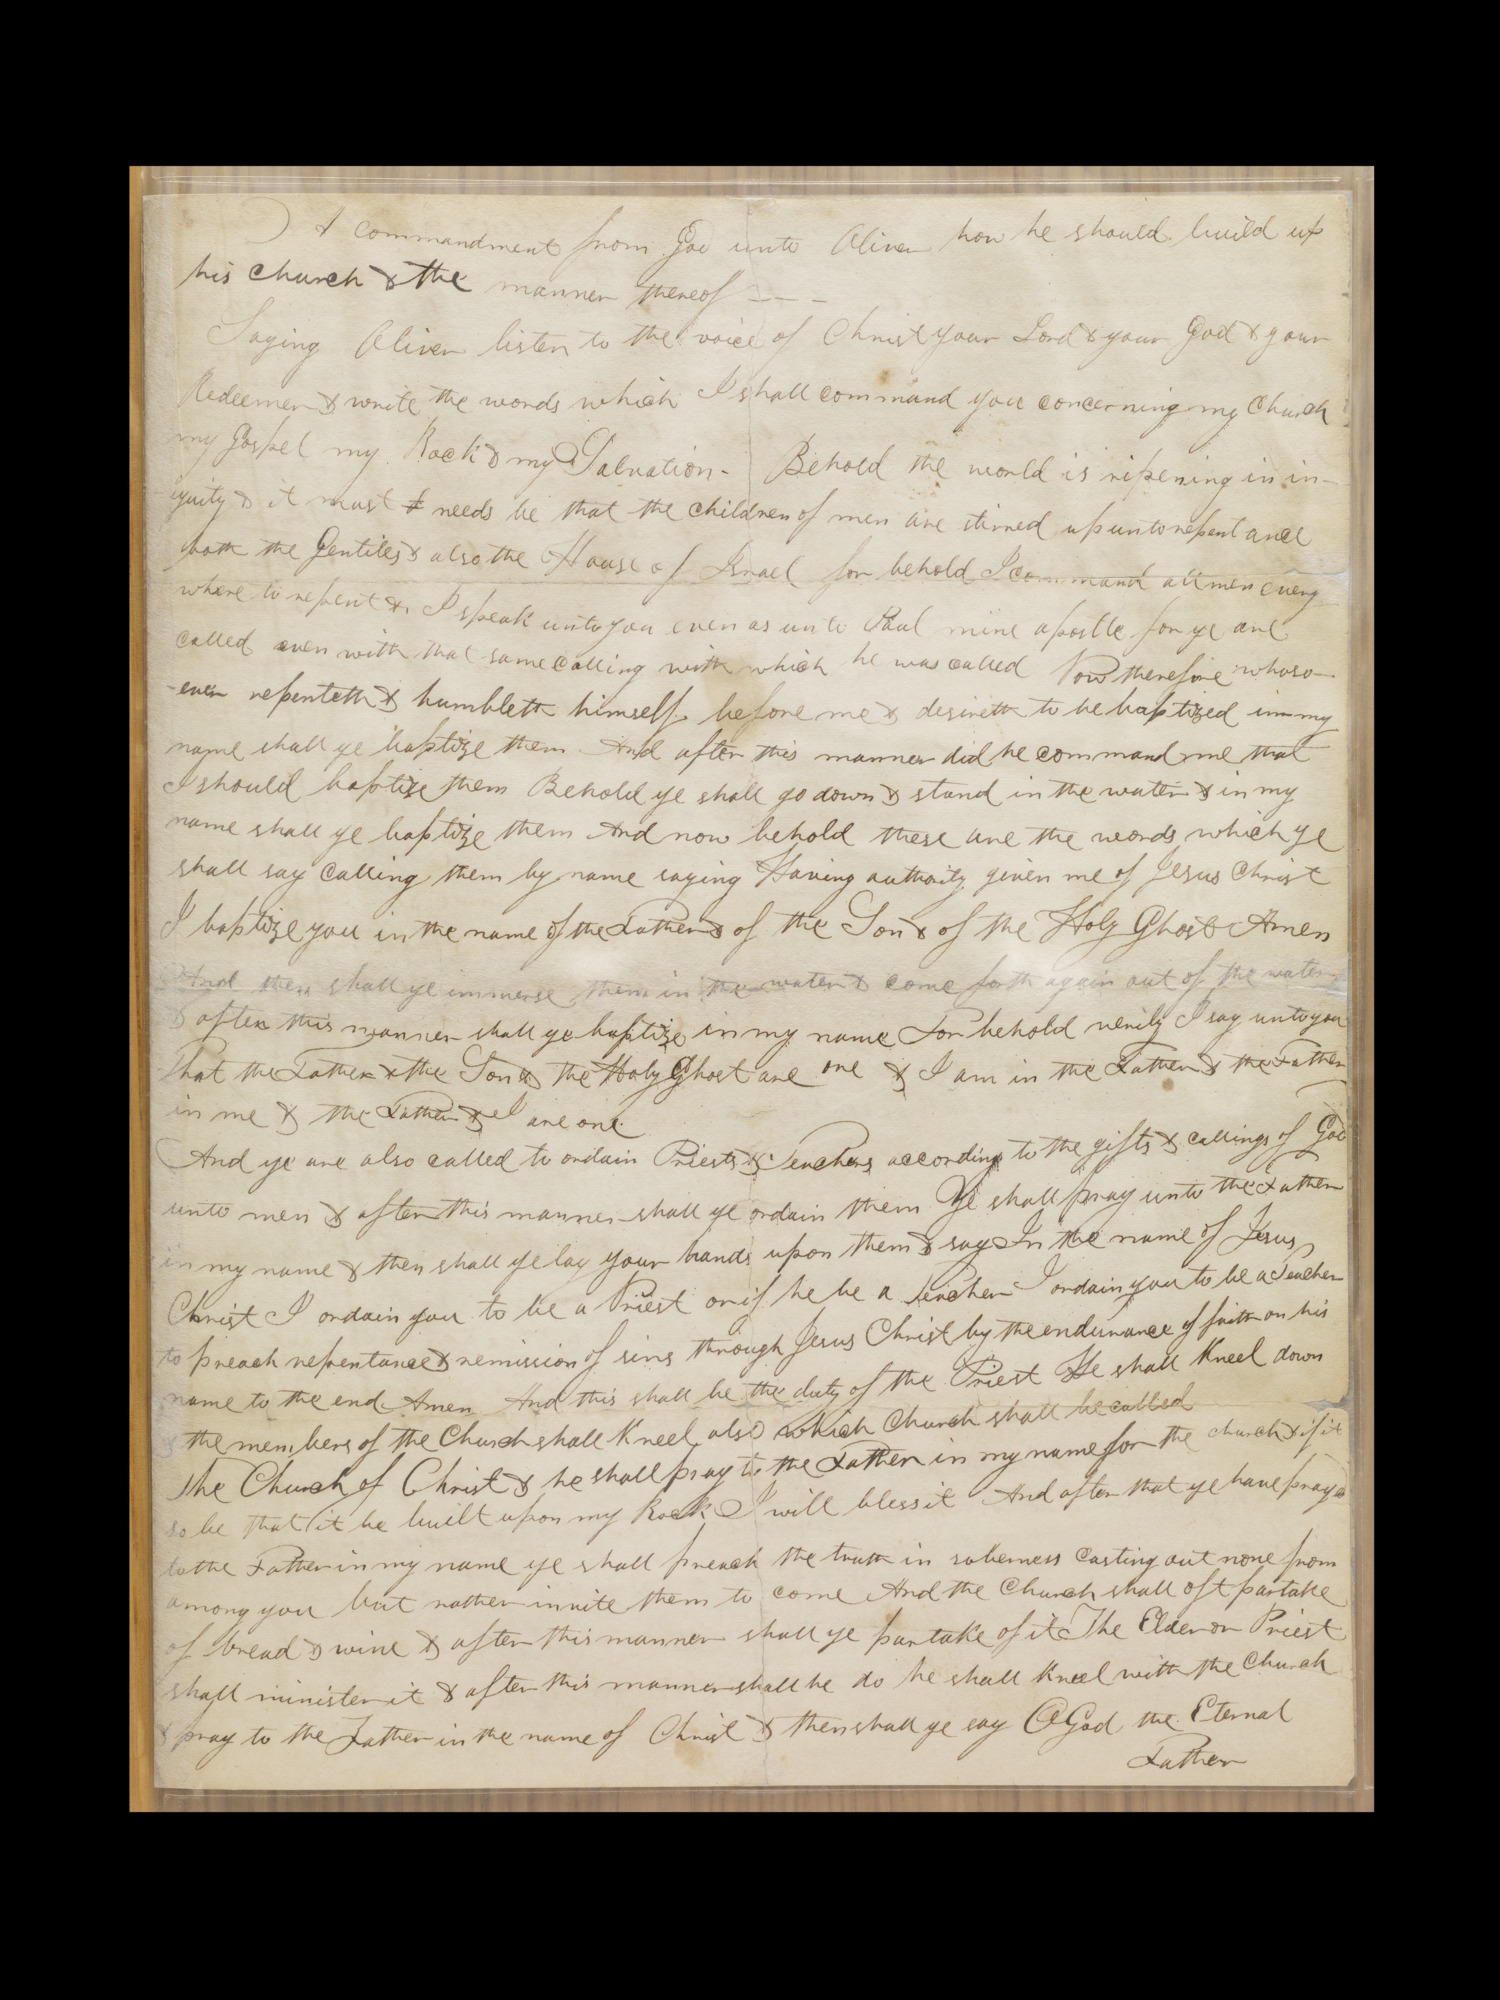 A commandment from God unto Oliver how he should build up
his Church & the manner thereof – – –
Saying Oliver listen to the voice of Christ your Lord & your God & your
Redeemer & write the words which I shall command you concerning my Church
my Gospel my Rock & my Salvation – Behold the world is ripening in in–
iquity & it must needs be that the children of men are stirred up unto repentance
both the Gentiles & also the House of Israel for behold I command all men every
where to repent & I speak unto you even as unto Paul mine apostle for ye are
called even with that same calling with which he was called Now therefore whoso–
ever repenteth & humbleth himself before me & desireth to be baptized in my
name shall ye baptize them And after this manner did he command me that
I should baptize them Behold ye shall go down & stand in the water & in my
name shall ye baptize them And now behold these are the words which ye
shall say calling them by name saying Having authority given me of Jesus Christ
I baptize you in the name of the Father & of the Son & of the Holy Ghost Amen
And then shall ye immerse them in the water & come forth again out of the water
& after this manner shall ye baptize in my name For behold verily I say unto you
that the Father & the Son & the Holy Ghost are one & I am in the Father & the Father
in me & the Father & I are one
And ye are also called to ordain Priests & Teachers according to the gifts & callings of God
unto men & after this manner shall ye ordain them Ye shall pray unto the Father
in my name & then shall ye lay your hands upon them & say In the name of Jesus
Christ I ordain you to be a Priest or if he be a Teacher I ordain you to be a Teacher
to preach repentance & remission of sins through Jesus Christ by the endurance of faith on his
name to the end Amen And this shall be the duty of the Priest He shall kneel down
& the members of the Church shall kneel also which Church shall be called
The Church of Christ & he shall pray to the Father in my name for the church & if it
so be that it be built upon my Rock I will bless it And after that ye have prayed
to the Father in my name ye shall preach the truth in soberness casting out none from
among you but rather invite them to come And the Church shall oft partake
of bread & wine & after this manner shall ye partake of it The Elder or Priest
shall minister it & after this manner shall he do he shall kneel with the Church
& pray to the Father in the name of Christ & then shall ye say O God the Eternal
Father